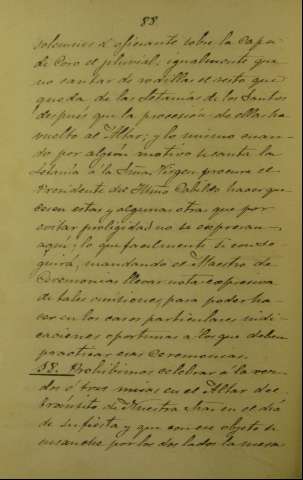 88
solemnes el oficiante, sobre la Capa
de Coro el pluvial, igualmente que
no cantar de rodillas el resto que
queda de las Letanias de los Santos
después que la procesión de ellas ha
vuelto al Altar; y lo mismo cuan-
do por algún motivo se canta la
Letanía á la Sma. Virgen procure el
Presidente del Cabildo hacer que
cesen estas y algunas otras que por
evitar prolijidad no se expresan
aquí; lo que facilmente si conse-
guirá, mandando el Maestro de
Ceremonias llevar nota expresa
de tales omisiones para poder ha-
cer en los casos particulares indi-
caciones oportunas a los que deben
practicar esas Ceremonias.
38. Prohibimos celebrar á la vez
dos ó tres misas en el Altar del
tránsito de Nuestra Sra. en el día
de su fiesta y que con ese objeto se
ensanche por los dos lados la mesa